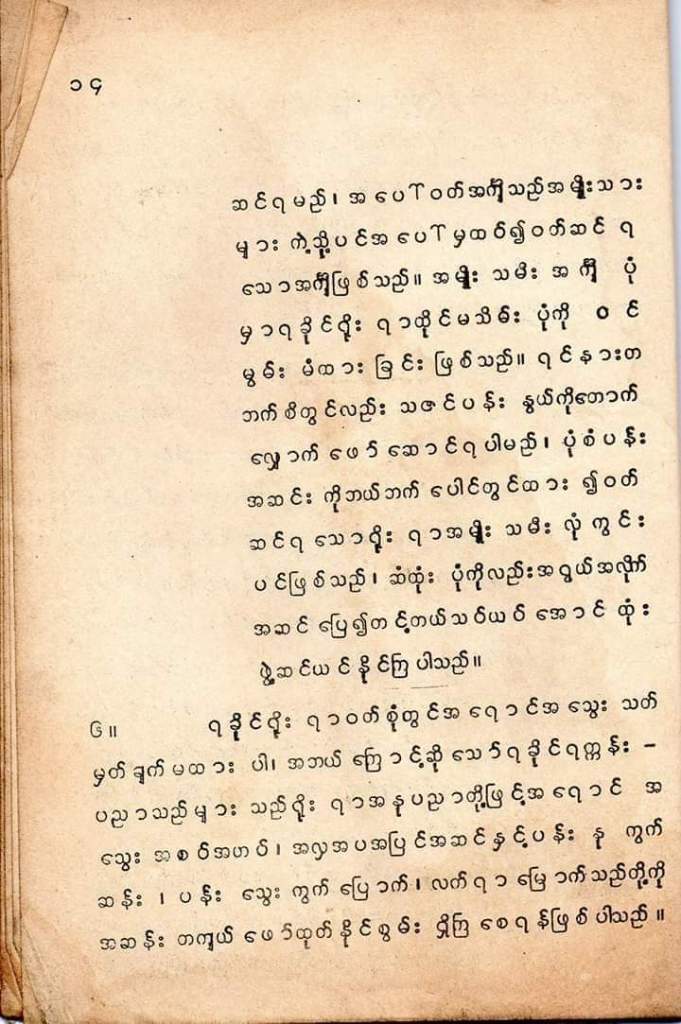 ၁၄
ဆင်ရမည်၊ အပေါ်ဝတ်အင်္ကျီသည်အမျိုးသား
များ ကဲ့သို့ပင်အပေါ်မှထပ်၍ဝတ်ဆင် ရ
သောအင်္ကျီဖြစ်သည်။ အမျိုး သမီး အင်္ကျီ ပုံ
မှာရခိုင်ရိုး ရာထိုင်မသိမ်း ပုံကို ဝင်
မွမ်း မံထား ခြင်း ဖြစ်သည်။ ရင်နားတ
ဘက်စီတွင်လည်း သဇင်ပန်း နွယ်ကိုတောက်
လျှောက် ဖော်ဆောင်ရပါမည်၊ ပုံစံပန်း
အဆင်း ကိုဘယ်ဘက် ပေါင်တွင်ထား ၍ဝတ်
ဆင်ရ သောရိုး ရာအမျိုး သမီး လုံကွင်း
ပင်ဖြစ်သည်၊ ဆံထုံး ပုံကိုလည်းအရွယ်အလိုက်
အဆင် ပြေ၍တင့်တယ်သပ်ယပ် အောင် ထုံး
ဖွဲ့ဆင်ယင်နိုင်ကြပါသည်။
၆။ ရခိုင်ရိုး ရာဝတ်စုံတွင်အရောင်အသွေး သတ်
မှတ်ချက်မထား ပါ၊ အဘယ်ကြောင့်ဆိုသော်ရခိုင်ရက္ကန်း –
ပညာသည်များ သည်ရိုး ရာအနုပညာတို့ဖြင့်အရောင် အ
သွေး အစပ်အဟပ်၊ အလှအပအပြင်အဆင်နှင့်ပန်း နု ကွက်
ဆန်း ၊ ပန်း သွေး ကွက်ပြောက်၊ လက်ရာမြောက်သည်တို့ကို
အဆန်း တကျယ်ဖော်ထုတ်နိုင်စွမ်း ရှိကြစေရန်ဖြစ်ပါသည်။